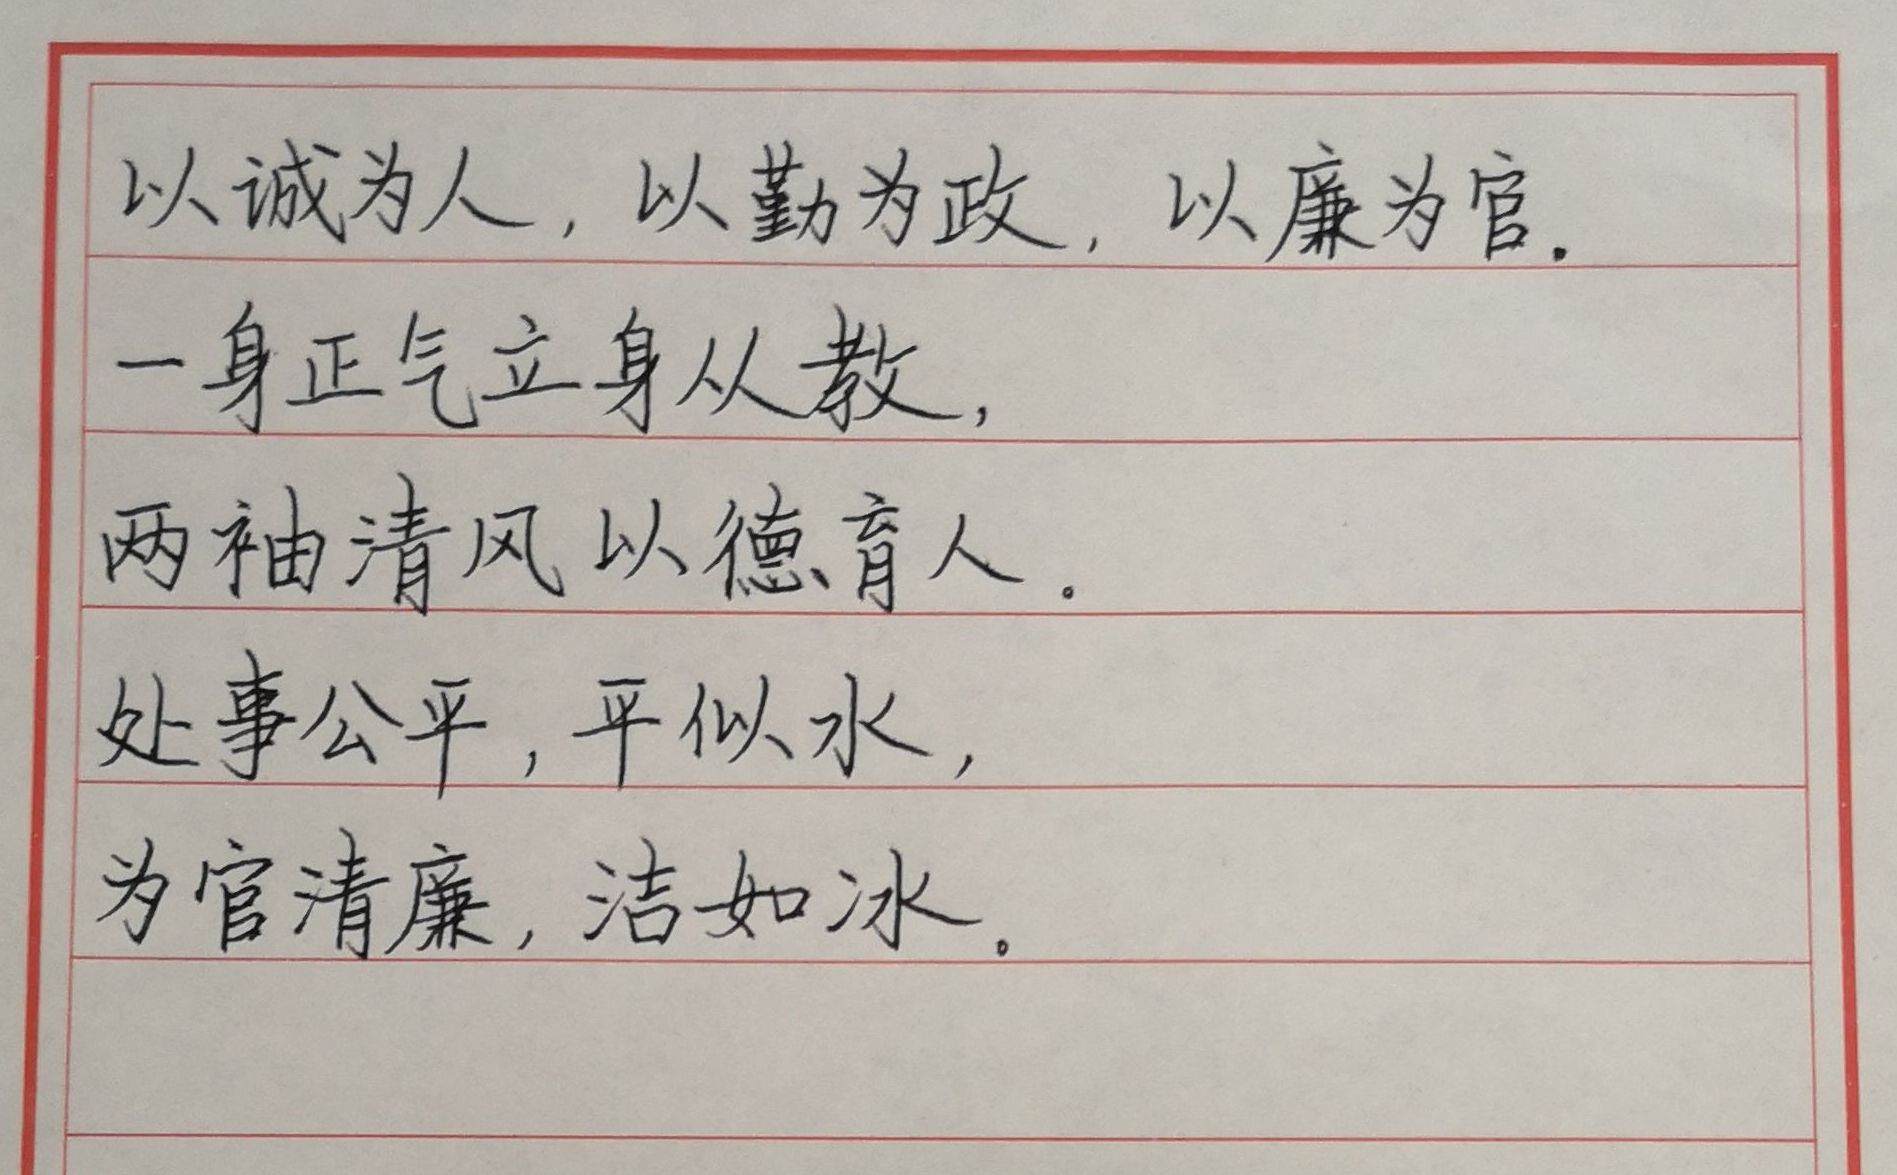 以诚为人，以勤为政，以廉为官.
一身正气立身从教，
两袖清风以德育人。
处事公平，平似水，
为官清廉，洁如冰。